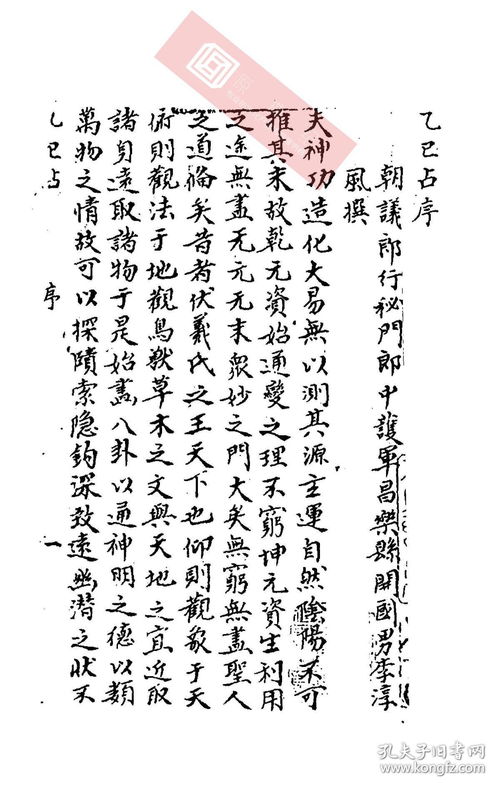 乙巳占序
朝議郎行祕門郎中護軍昌樂縣開國男李淳
風撰
夫神功造化大易無以測其源主運自然陰陽不可
推其末故乾元資始通變之理不窮坤元資生利用
之途無盡无元无末衆妙之門大矣無窮無盡聖人
之道備矣昔者伏羲氏之王天下也仰則觀象于天
俯則觀法于地觀鳥獸草木之文與天地之宜近取
諸身遠取諸物于是始畫八卦以通神明之德以類
萬物之情故可以探賾索隐鈎深致遠幽潜之狀不
乙巳占　序　一
孔夫子旧书网
www.kongfz.com